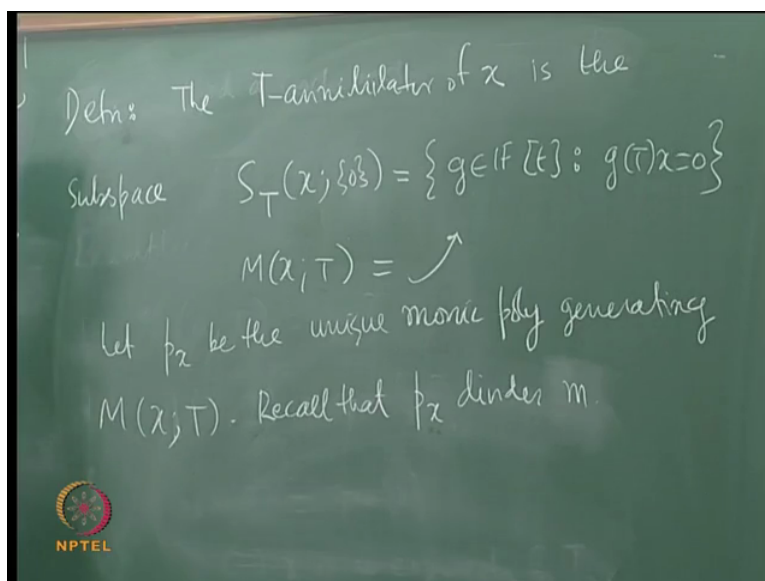 Defn: The T-annihilator of x is the
subspace S_T(x; {0}) = { g ∈ IF [t] : g(T)x=0}
M(x; T) = ↗
Let p_x be the unique monic poly generating
M(x; T). Recall that p_x divides m.
NPTEL